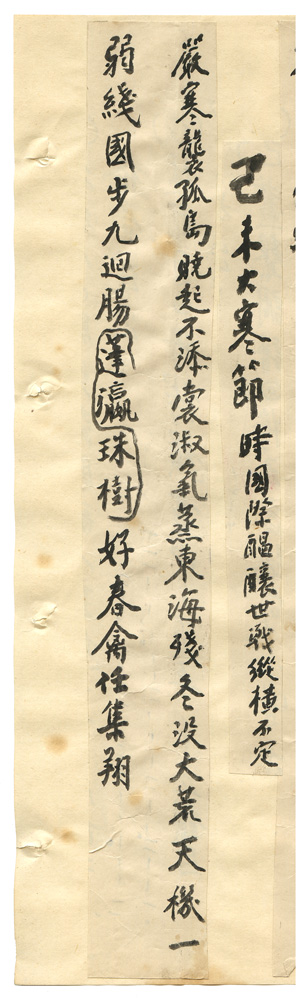 己未大寒節時国際醞釀世戰縱橫不定
嚴寒襲孤島曉起不添裳淑氣蒸東海殘冬沒大荒天機一
弱綫國步九迴腸蓬瀛珠樹好春禽任集翔